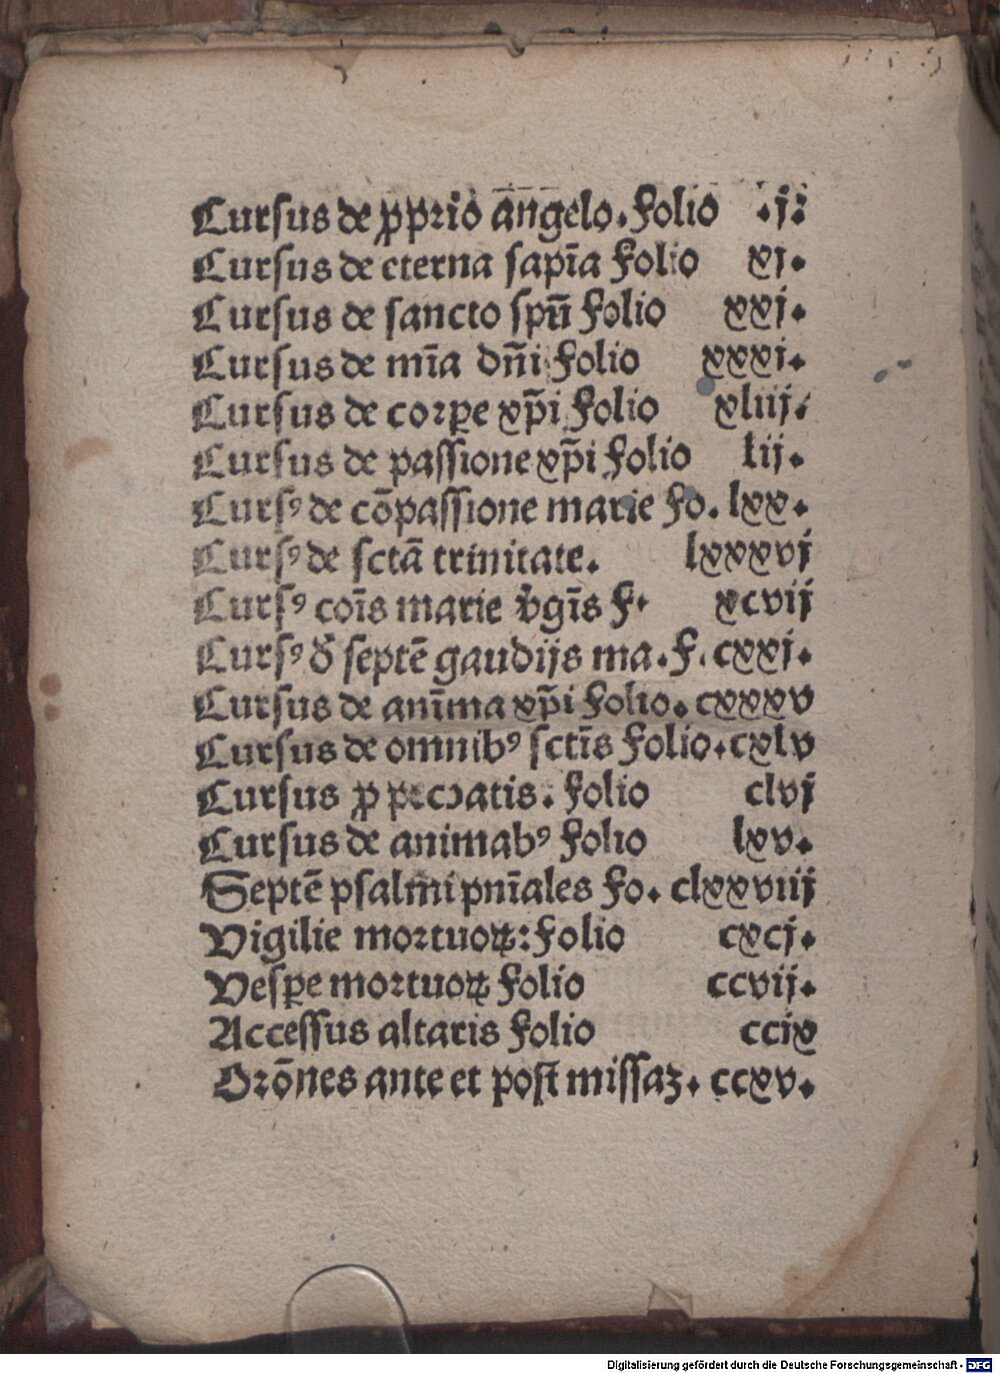 Cursus de ꝓprio angelo. Folio .j.
Cursus de eterna sapīa Folio xj.
Cursus de sancto spū Folio xxj.
Cursus de mīa dn̄i Folio xxxj.
Cursus de corꝑe xp̄i Folio xliij.
Cursus de passione xp̄i Folio lij.
Cursꝰ de cōpassione marie Fo. lxx.
Cursꝰ de sctā trinitate. lxxxvj
Cursꝰ coīs marie v̓gīs F. xcvij
Cursꝰ d̓ septē gaudijs ma. F. cxxj.
Cursus de anīma xp̄i Folio. cxxxv
Cursus de omnibꝰ sctīs Folio. cxlv
Cursus ꝓ peccatis. Folio clvj
Cursus de animabꝰ Folio lxv.
Septē psalmi pnīales Fo. clxxviij
Vigilie mortuoꝝ: Folio cxcj.
Vesꝑe mortuoꝝ Folio ccvij.
Accessus altaris Folio ccix
Orōnes ante et post missaꝫ. ccxv.
Digitalisierung gefördert durch die Deutsche Forschungsgemeinschaft - DFG